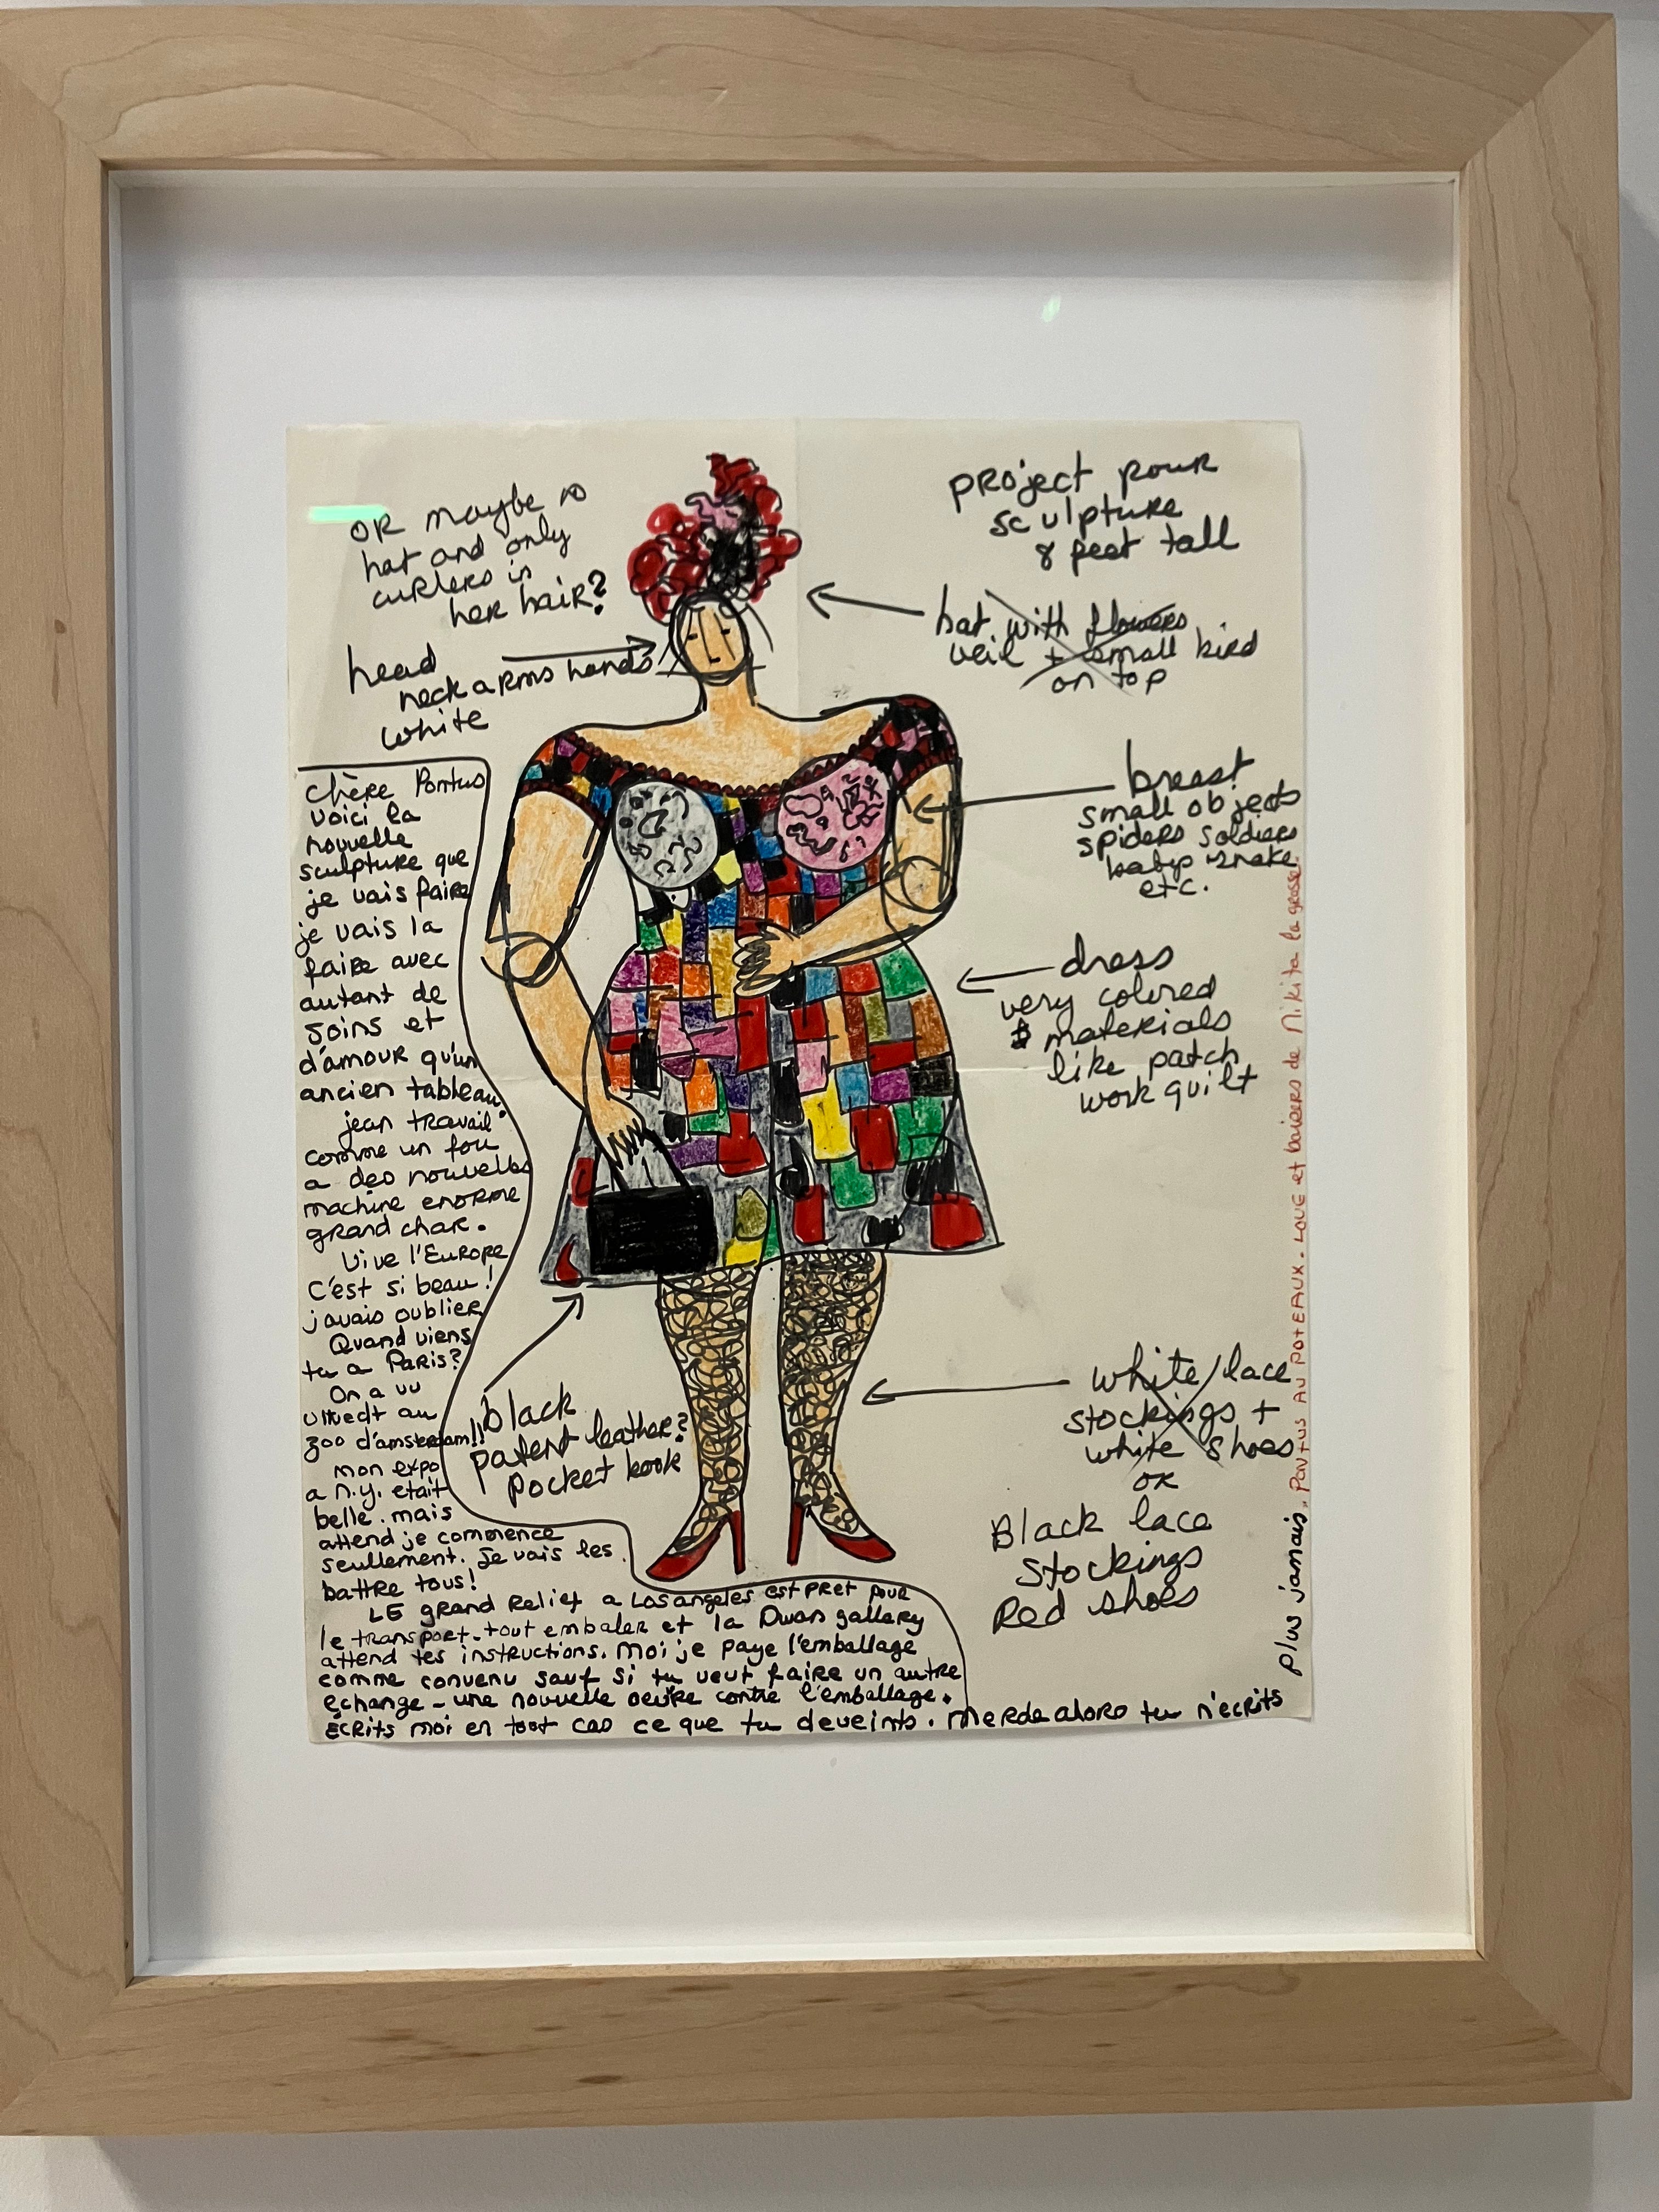 OR maybe no
hat and only
curlers in
her hair?
head
neck arms hands
white
project pour
sculpture
8 feet tall
hat with flowers
veil + small bird
on top
breast
small objects
spiders soldiers
baby snake
etc.
dress
very colored
materials
like patch
work quilt
white lace
stockings +
white shoes
or
Black lace
stockings
Red shoes
black
patent leather?
pocket book
chère Pontus
voici la
nouvelle
sculpture que
je vais faire
je vais la
faire avec
autant de
soins et
d'amour qu'un
ancien tableau.
jean travail
comme un fou
a des nouvelles
machine enorme
grand char.
Vive l'Europe
C'est si beau!
javais oublier
Quand viens
tu a Paris?
On a vu
ultvedt au
zoo d'amsterdam!!
mon expo
a n.y. etait
belle. mais
attend je commence
seullement. Je vais les
battre tous!
LE grand Relief a Los angeles est pret pour
le transport. tout embaler et la Dwan gallery
attend tes instructions. Moi je paye l'emballage
comme convenu sauf si tu veut faire un autre
echange - une nouvelle oeuvre contre l'emballage.
ECRits moi en tout cas ce que tu deveints. Merde alors tu n'ecrits
plus jamais. Pontus AU POTEAUX. LOVE et baisers de Nikita la grosse